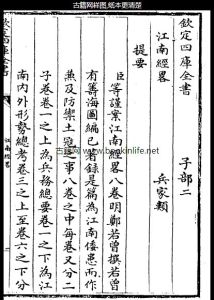 古籍网样图,纸本更清楚
欽定四庫全書　子部二
江南經畧　兵家類
提要
臣等謹案江南經畧八卷明鄭若曾撰若曾
有籌海圖編已著錄是篇為江南倭患而作
兼及防禦土寇之事八卷之中每卷又分二
子卷卷一之上為兵務總要卷一之下為江
南内外形勢總考卷二之上至卷六之下分
欽定四庫全書
江南經畧
www.bookinlife.net